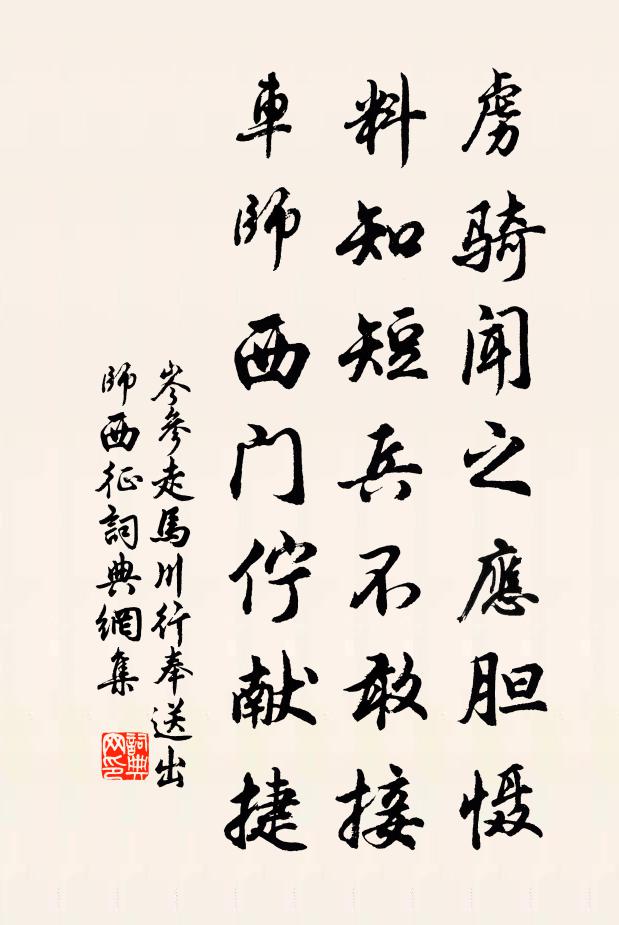 虜騎聞之應胆慑
料知短兵不敢接
車師西门佇献捷
岑參走馬川行奉送出
師西征詞典網集
詞典网印